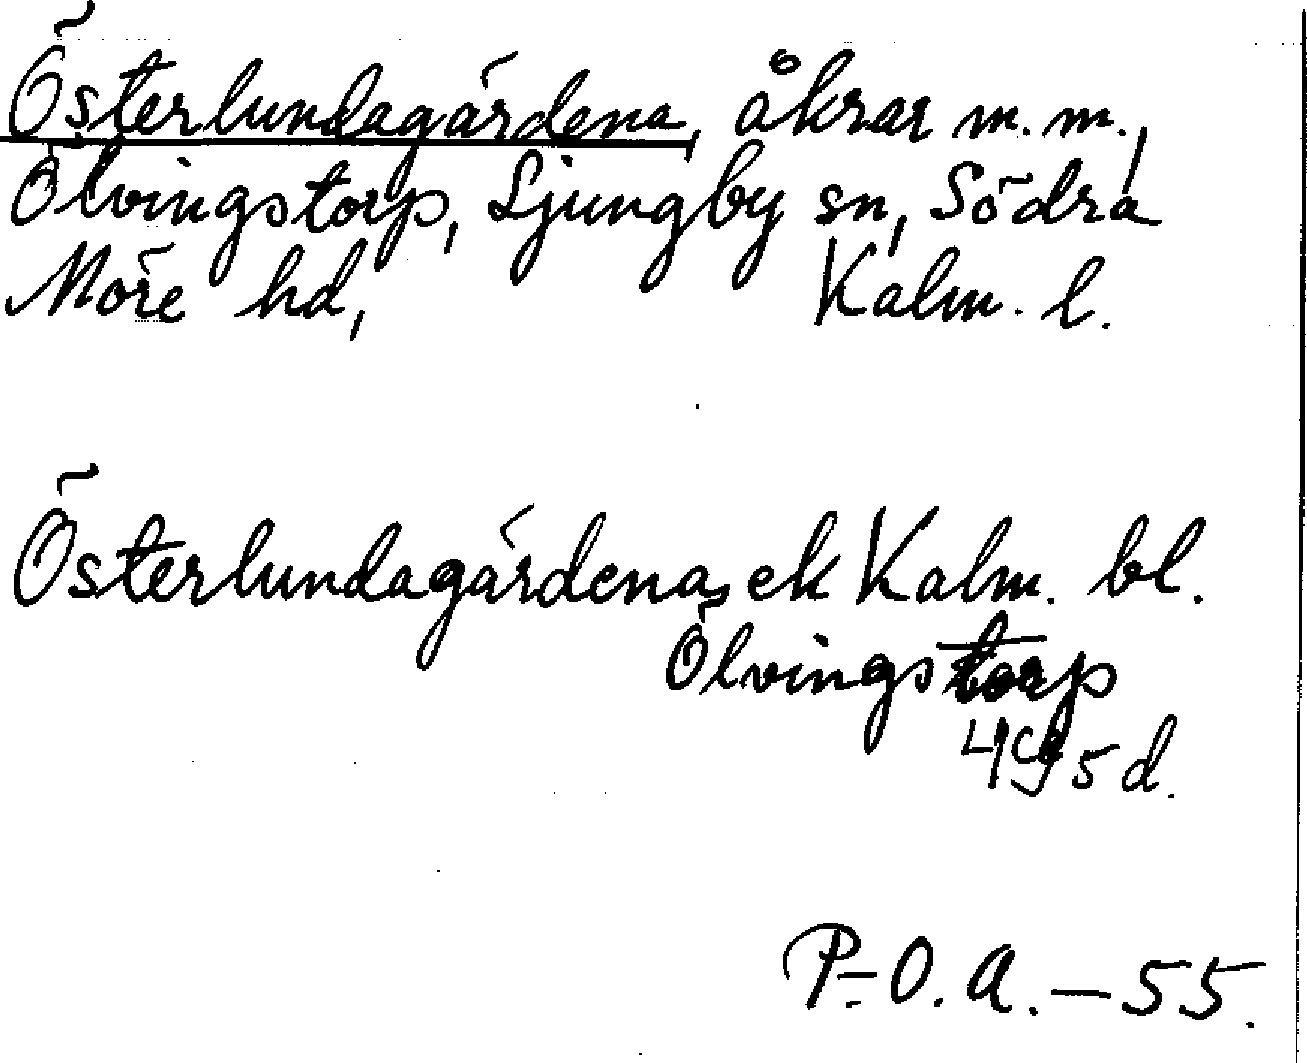 Österlundagärdena, åkrar m.m.,
Ölvingstorp, Ljungby sn, Södra
Möre hd, Kalm. l.
Österlundagärdena, ek Kalm. bl.
Ölvingstorp
4g5d.
P-O.A.-55.